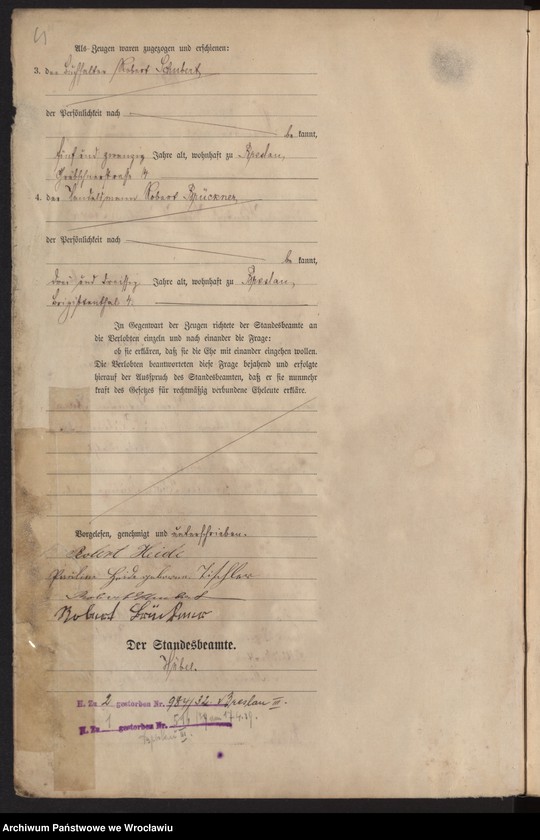 Als Zeugen waren zugezogen und erschienen:
3. der Buchhalter Robert Schubert,
der Persönlichkeit nach
be kannt,
fünf und zwanzig Jahre alt, wohnhaft zu Breslau,
Gräbschnerstraße
4. der Handelsmann Robert Brückner,
der Persönlichkeit nach
be kannt,
drei und dreißig Jahre alt, wohnhaft zu Breslau,
Brigittenthal 4.
In Gegenwart der Zeugen richtete der Standesbeamte an
die Verlobten einzeln und nach einander die Frage:
ob sie erklären, daß sie die Ehe mit einander eingehen wollen.
Die Verlobten beantworteten diese Frage bejahend und erfolgte
hierauf der Ausspruch des Standesbeamten, daß er sie nunmehr
kraft des Gesetzes für rechtmäßig verbundene Eheleute erkläre.
Vorgelesen, genehmigt und unterschrieben.
Robert Heide
Pauline Heide geborene Tischler
Robert Schubert
Robert Brückner
Der Standesbeamte.
H. Zu 2 gestorben Nr. 984/32 Breslau III.
H. Zu 1 gestorben Nr.
Archiwum Państwowe we Wrocławiu